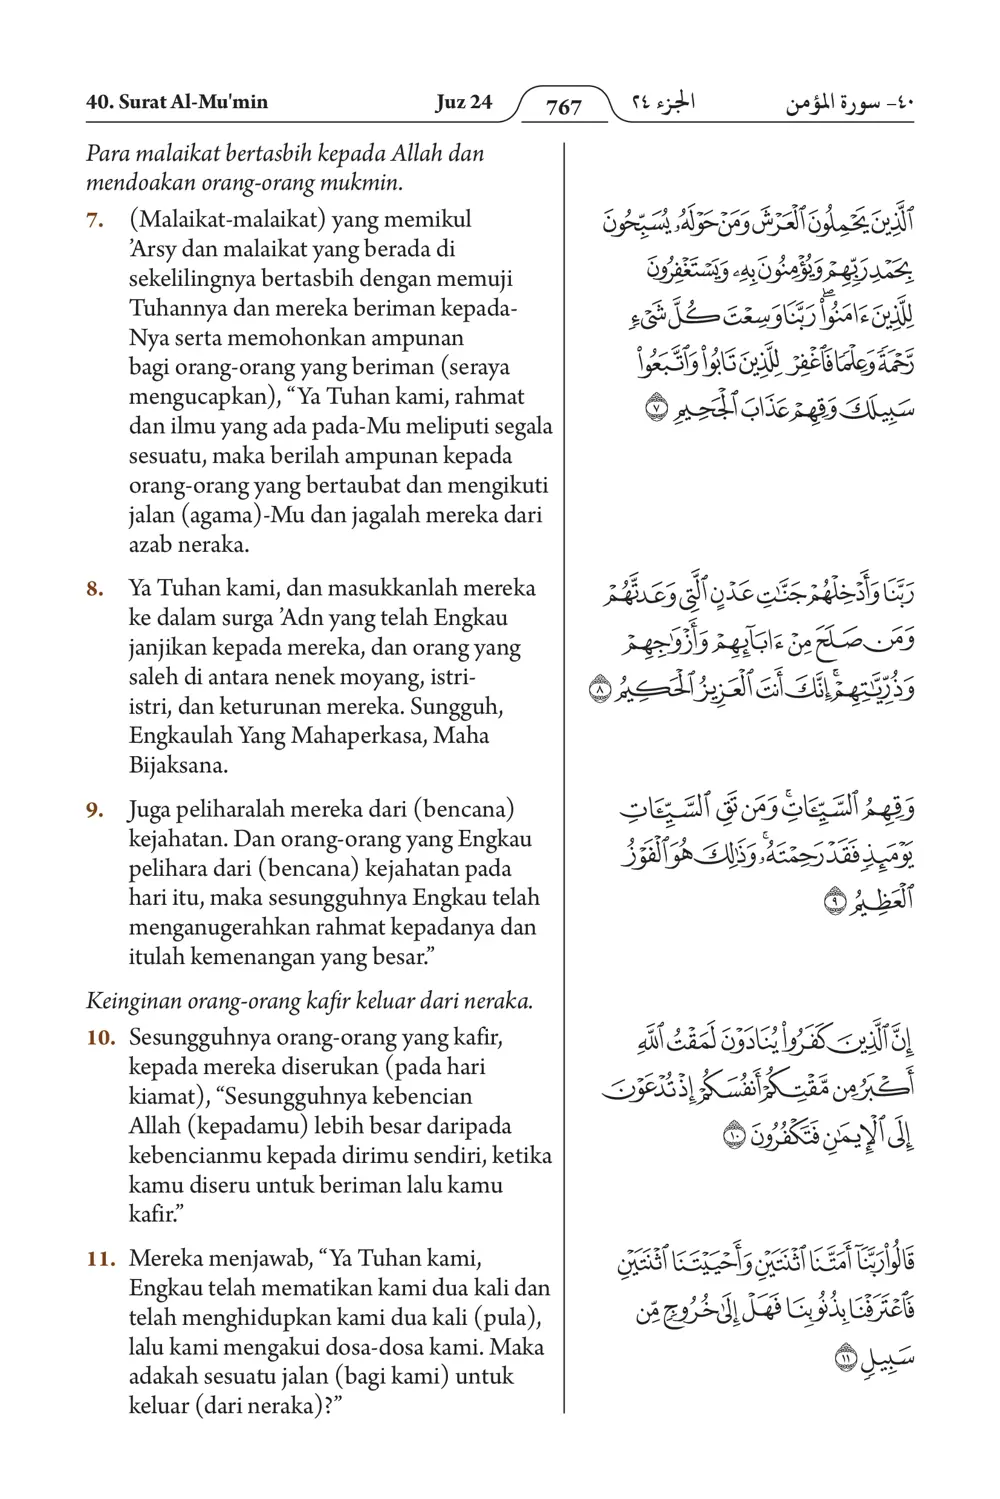 40. Surat Al-Mu'min
Juz 24
767
الجزء ٢٤
٤٠- سورة المؤمن
Para malaikat bertasbih kepada Allah dan
mendoakan orang-orang mukmin.
7. (Malaikat-malaikat) yang memikul
’Arsy dan malaikat yang berada di
sekelilingnya bertasbih dengan memuji
Tuhannya dan mereka beriman kepada-
Nya serta memohonkan ampunan
bagi orang-orang yang beriman (seraya
mengucapkan), “Ya Tuhan kami, rahmat
dan ilmu yang ada pada-Mu meliputi segala
sesuatu, maka berilah ampunan kepada
orang-orang yang bertaubat dan mengikuti
jalan (agama)-Mu dan jagalah mereka dari
azab neraka.
ٱلَّذِينَ يَحۡمِلُونَ ٱلۡعَرۡشَ وَمَنۡ حَوۡلَهُۥ يُسَبِّحُونَ
بِحَمۡدِ رَبِّهِمۡ وَيُؤۡمِنُونَ بِهِۦ وَيَسۡتَغۡفِرُونَ
لِلَّذِينَ ءَامَنُواْۖ رَبَّنَا وَسِعۡتَ كُلَّ شَيۡءٖ
رَّحۡمَةٗ وَعِلۡمٗا فَٱغۡفِرۡ لِلَّذِينَ تَابُواْ وَٱتَّبَعُواْ
سَبِيلَكَ وَقِهِمۡ عَذَابَ ٱلۡجَحِيمِ ٧
8. Ya Tuhan kami, dan masukkanlah mereka
ke dalam surga ’Adn yang telah Engkau
janjikan kepada mereka, dan orang yang
saleh di antara nenek moyang, istri-
istri, dan keturunan mereka. Sungguh,
Engkaulah Yang Mahaperkasa, Maha
Bijaksana.
رَبَّنَا وَأَدۡخِلۡهُمۡ جَنَّٰتِ عَدۡنٍ ٱلَّتِي وَعَدتَّهُمۡ
وَمَن صَلَحَ مِنۡ ءَابَآئِهِمۡ وَأَزۡوَٰجِهِمۡ
وَذُرِّيَّٰتِهِمۡۚ إِنَّكَ أَنتَ ٱلۡعَزِيزُ ٱلۡحَكِيمُ ٨
9. Juga peliharalah mereka dari (bencana)
kejahatan. Dan orang-orang yang Engkau
pelihara dari (bencana) kejahatan pada
hari itu, maka sesungguhnya Engkau telah
menganugerahkan rahmat kepadanya dan
itulah kemenangan yang besar.”
وَقِهِمُ ٱلسَّيِّـَٔاتِۚ وَمَن تَقِ ٱلسَّيِّـَٔاتِ
يَوۡمَئِذٖ فَقَدۡ رَحِمۡتَهُۥۚ وَذَٰلِكَ هُوَ ٱلۡفَوۡزُ
ٱلۡعَظِيمُ ٩
Keinginan orang-orang kafir keluar dari neraka.
10. Sesungguhnya orang-orang yang kafir,
kepada mereka diserukan (pada hari
kiamat), “Sesungguhnya kebencian
Allah (kepadamu) lebih besar daripada
kebencianmu kepada dirimu sendiri, ketika
kamu diseru untuk beriman lalu kamu
kafir.”
إِنَّ ٱلَّذِينَ كَفَرُواْ يُنَادَوۡنَ لَمَقۡتُ ٱللَّهِ
أَكۡبَرُ مِن مَّقۡتِكُمۡ أَنفُسَكُمۡ إِذۡ تُدۡعَوۡنَ
إِلَى ٱلۡإِيمَٰنِ فَتَكۡفُرُونَ ١٠
11. Mereka menjawab, “Ya Tuhan kami,
Engkau telah mematikan kami dua kali dan
telah menghidupkan kami dua kali (pula),
lalu kami mengakui dosa-dosa kami. Maka
adakah sesuatu jalan (bagi kami) untuk
keluar (dari neraka)?”
قَالُواْ رَبَّنَآ أَمَتَّنَا ٱثۡنَتَيۡنِ وَأَحۡيَيۡتَنَا ٱثۡنَتَيۡنِ
فَٱعۡتَرَفۡنَا بِذُنُوبِنَا فَهَلۡ إِلَىٰ خُرُوجٖ مِّن
سَبِيلٖ ١١